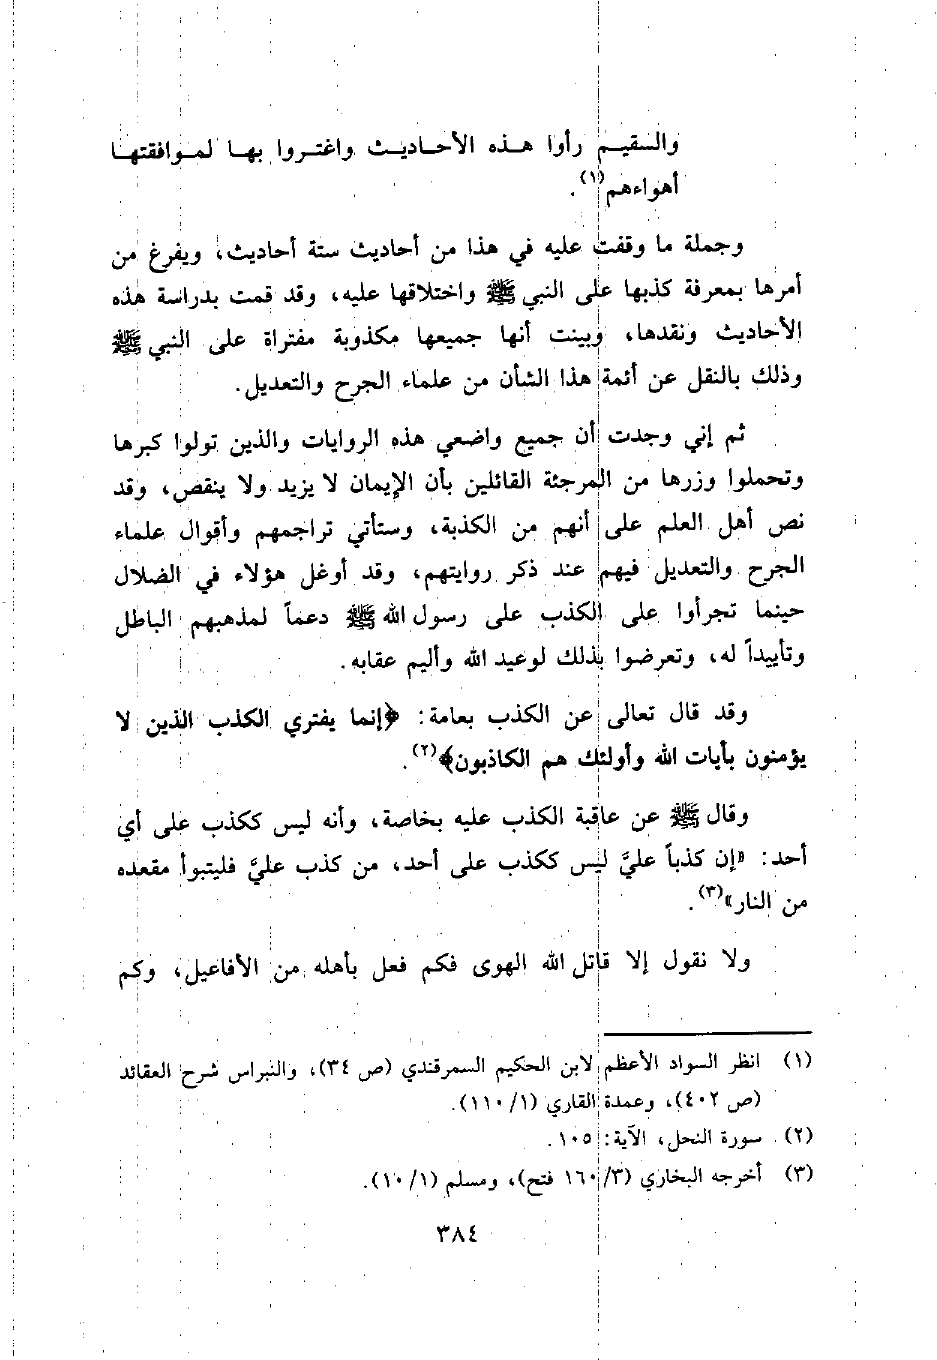 والسقيم رأوا هذه الأحاديث واغتروا بها لموافقتها
أهواءهم(١).
وجملة ما وقفت عليه في هذا من أحاديث ستة أحاديث، ويفرغ من
أمرها بمعرفة كذبها على النبي ﷺ واختلاقها عليه، وقد قمت بدراسة هذه
الأحاديث ونقدها، وبينت أنها جميعها مكذوبة مفتراة على النبي ﷺ
وذلك بالنقل عن أئمة هذا الشأن من علماء الجرح والتعديل.
ثم إني وجدت أن جميع واضعي هذه الروايات والذين تولوا كبرها
وتحملوا وزرها من المرجئة القائلين بأن الإيمان لا يزيد ولا ينقص، وقد
نص أهل العلم على أنهم من الكذبة، وستأتي تراجمهم وأقوال علماء
الجرح والتعديل فيهم عند ذكر روايتهم، وقد أوغل هؤلاء في الضلال
حينما تجرأوا على الكذب على رسول الله ﷺ دعماً لمذهبهم الباطل
وتأييداً له، وتعرضوا بذلك لوعيد الله وأليم عقابه.
وقد قال تعالى عن الكذب بعامة: ﴿إنما يفتري الكذب الذين لا
يؤمنون بأيات الله وأولئك هم الكاذبون﴾(٢).
وقال ﷺ عن عاقبة الكذب عليه بخاصة، وأنه ليس ككذب على أي
أحد: «إن كذباً عليَّ ليس ككذب على أحد، من كذب عليَّ فليتبوأ مقعده
من النار»(٣).
ولا نقول إلا قاتل الله الهوى فكم فعل بأهله من الأفاعيل، وكم
(١) انظر السواد الأعظم لابن الحكيم السمرقندي (ص ٣٤)، والنبراس شرح العقائد
(ص ٤٠٢)، وعمدة القاري (١/ ١١٠).
(٢) سورة النحل، الآية: ١٠٥.
(٣) أخرجه البخاري (٣/ ١٦٠ فتح)، ومسلم (١/ ١٠).
٣٨٤